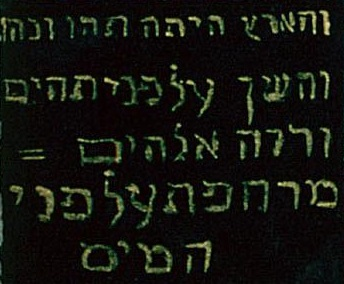 והארץ היתה תהו ובהו
וחשך על פני תהום
ורוח אלהים =
מרחפת על פני
המים